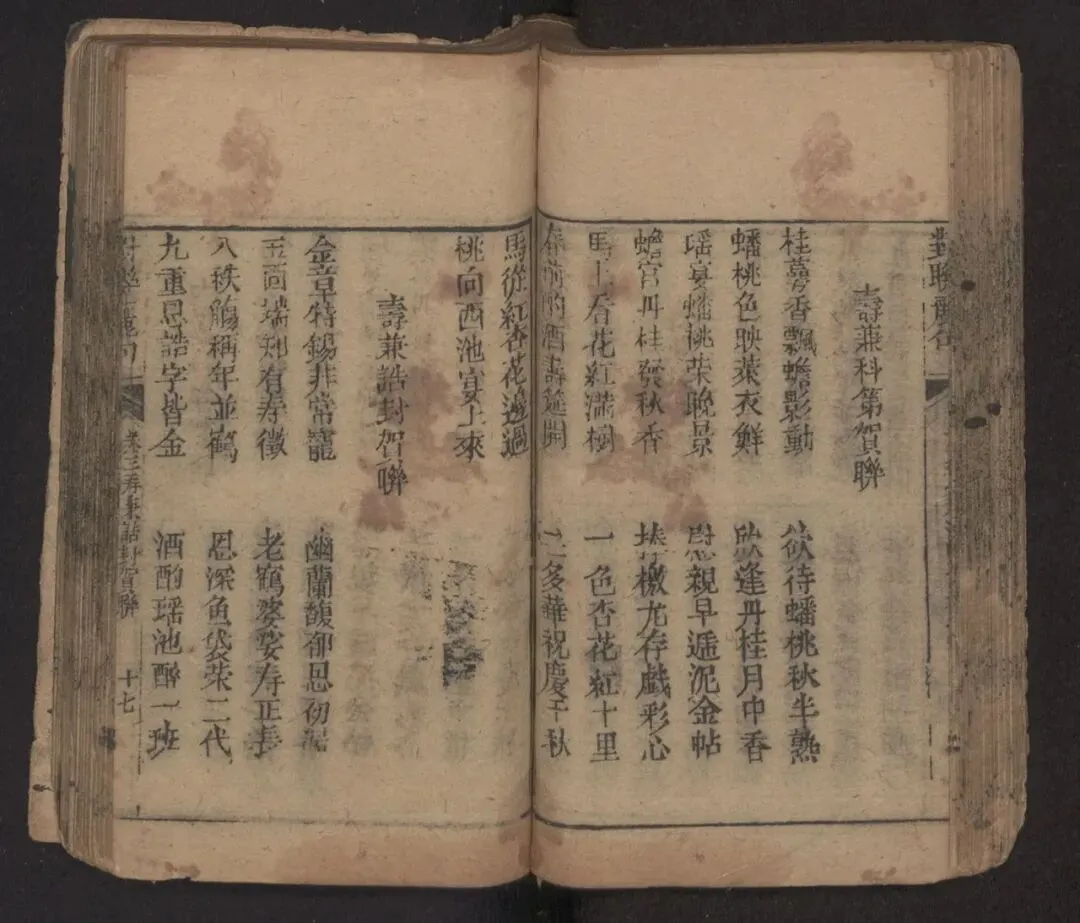 對聯
壽兼科第賀聯
桂蕚香飄蟾影動 欲待蟠桃秋半熟
蟠桃色映萊衣鮮 欣逢丹桂月中香
瑶宴蟠桃荣晚景 慰親早遞泥金帖
蟾宫丹桂發秋香 捧檄尤存戯彩心
馬上看花紅滿樹 一色杏花紅十里
前酌酒壽筵開 多華祝慶千秋
馬從紅杏花邊過
桃向西池宴上來
壽兼誥封賀聯
金章特錫非常寵 幽蘭馥郁恩初渥
瑞 有寿徵 老鶴婆娑寿正長
八秩觴稱年並鶴 恩深魚袋荣二代
九重恩誥字皆金 酒酌瑶池醉一班
卷三寿兼誥封賀聯 十七